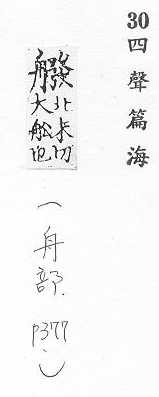 30 四聲篇海
北末切
大舩也
(舟部. p377)